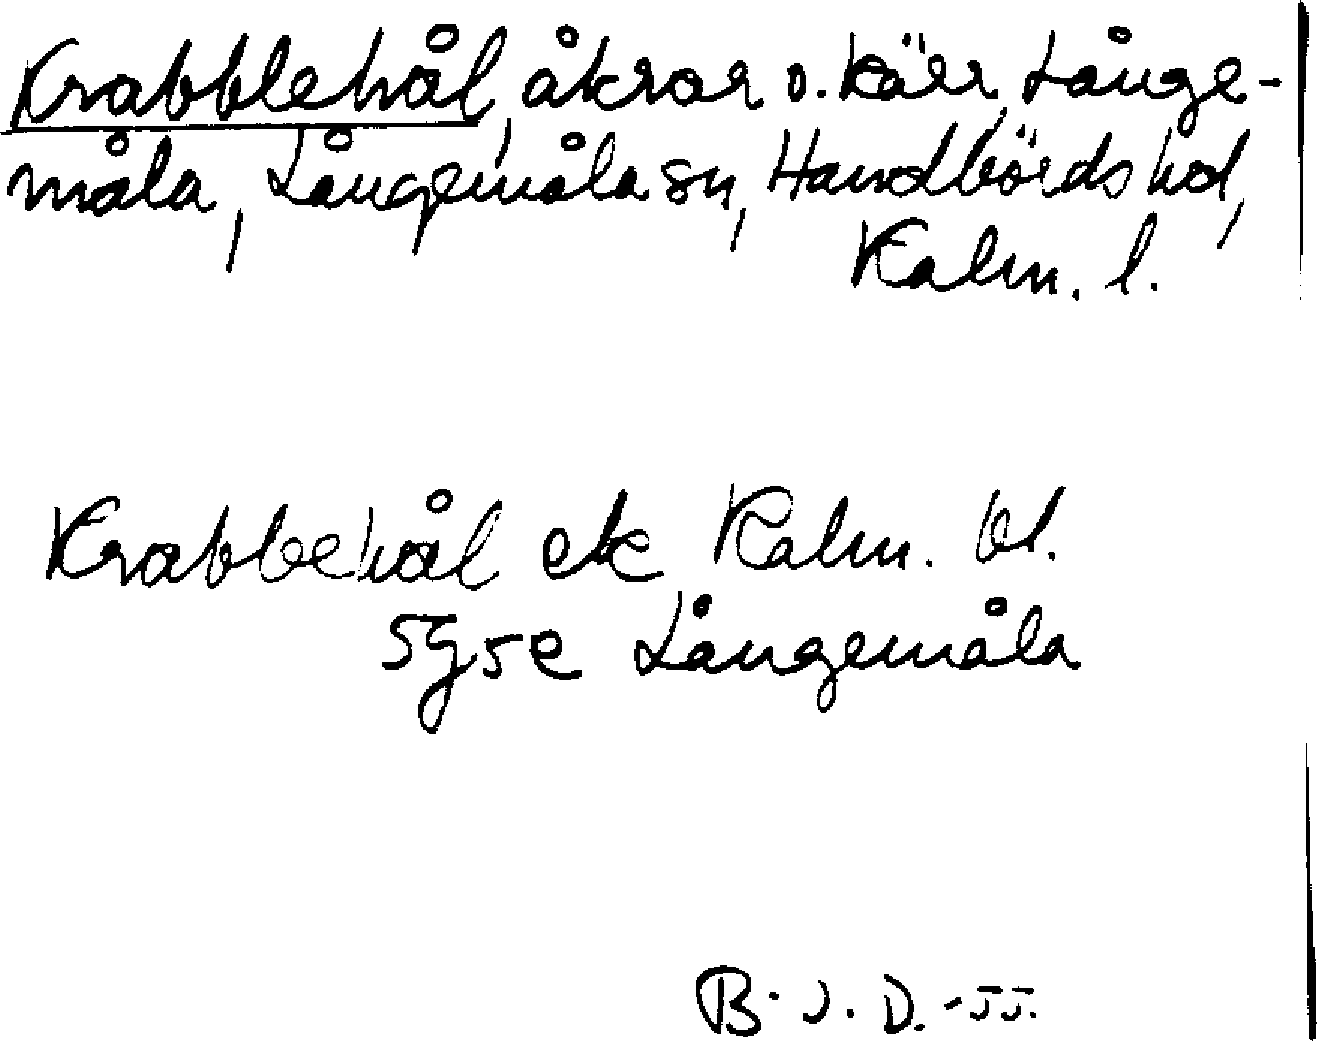 Krabblehål, åkrar o. kärr, Långe-
måla, Långemåla sn, Handbörds hd,
Kalm. l.
Krabbehål ek Kalm. bl.
5G5e Långemåla
B. J. D. -55.